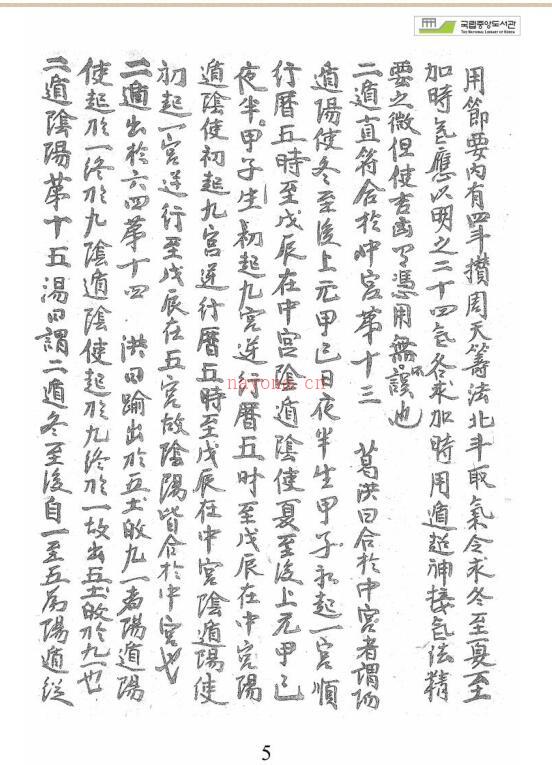 국립중앙도서관
THE NATIONAL LIBRARY OF KOREA
用節要内有四斗攅周天筭法北斗取氣令求冬至夏至
加時氣應以明之二十四氣各求加時用遁超神接氣法精
要之微但使吉凶了憑用無誤也
二遁直符合於中宮第十三 葛洪曰合於中宮者謂陽
遁陽使冬至後上元甲己日夜半生甲子初起一宮順
行曆五時至戊辰在中宮陰遁陰使夏至後上元甲己
夜半甲子生初起九宮逆行曆五时至戊辰在中宮陽
遁陰使初起九宮逆行曆五時至戊辰在中宮陰遁陽使
初起一宮逆行至戊辰在五宮故陰陽皆合於中宮也
二遁出於六四第十四 洪曰踰出於五土故九一者陽遁陽
使起於一終於九陰遁陰使起於九終於一故出五土故於九一也
二遁陰陽第十五 湯曰謂二遁冬至後自一至五為陽遁從
nayona.cn
5